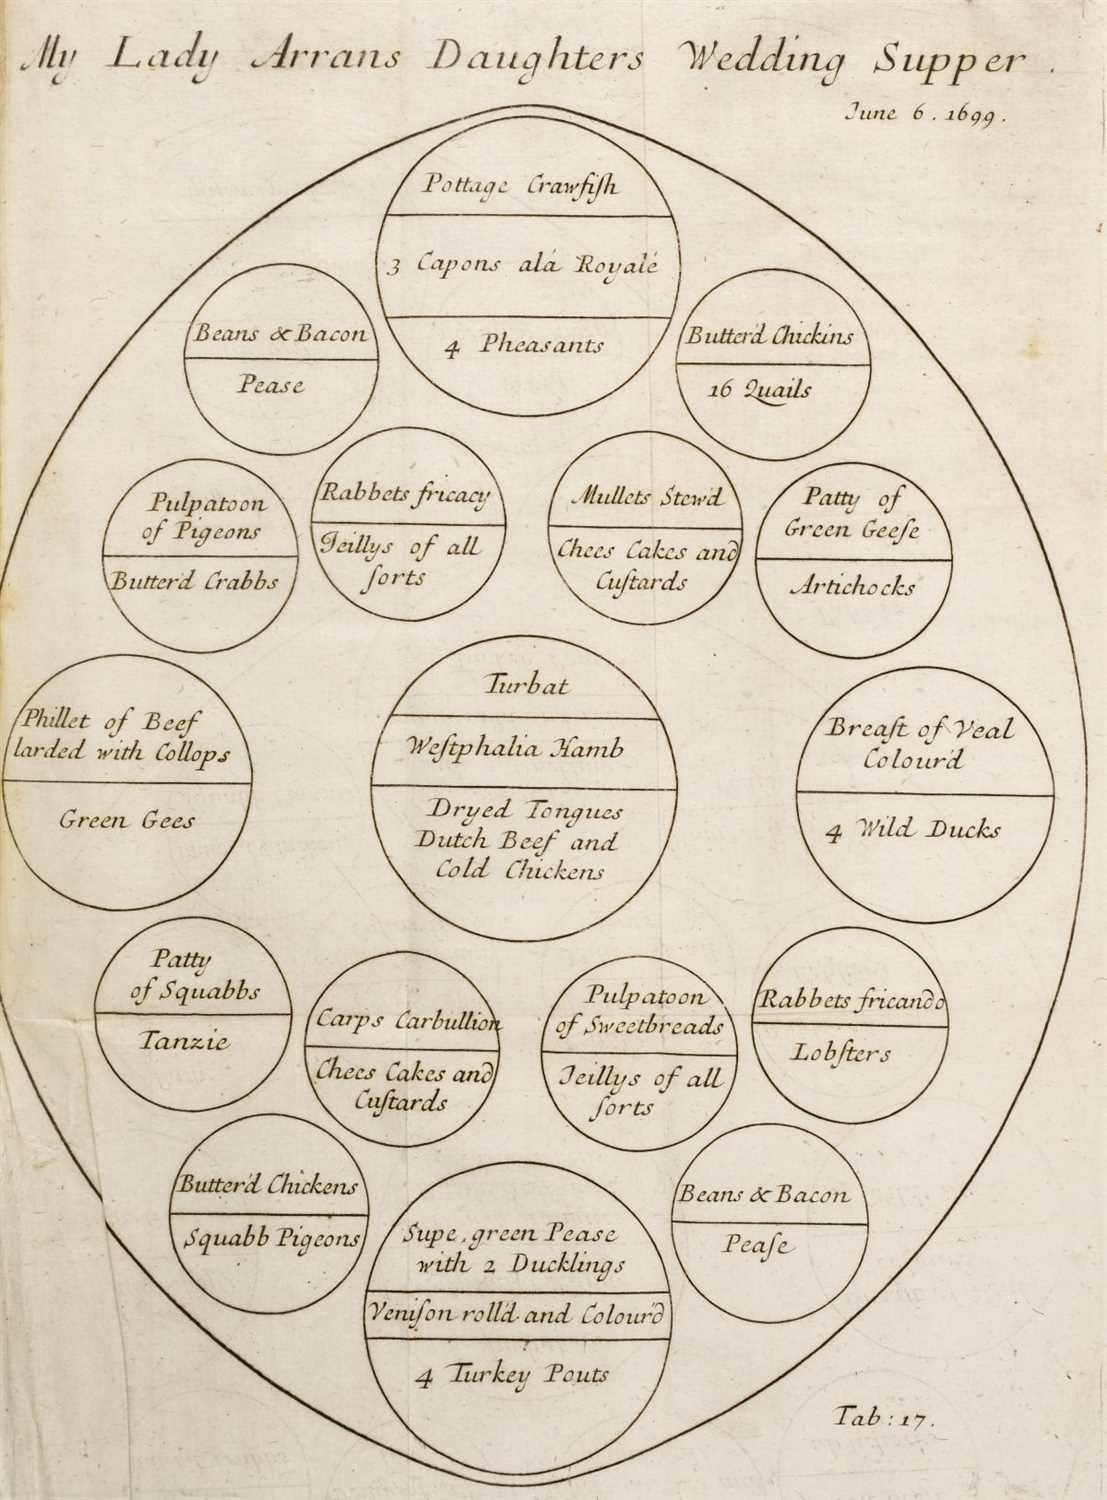 My Lady Arrans Daughters Wedding Supper .
June 6 . 1699 .
Pottage Crawfiſh
3 Capons alá Royalé
4 Pheasants
Beans & Bacon
Pease
Butter'd Chickins
16 Quails
Pulpatoon
of Pigeons
Butter'd Crabbs
Rabbets fricacy
Jeillys of all
ſorts
Mullets Stew'd
Chees Cakes and
Cuſtards
Patty of
Green Geeſe
Artichocks
Phillet of Beef
larded with Collops
Green Gees
Turbat
Weſtphalia Hamb
Dryed Tongues
Dutch Beef and
Cold Chickens
Breaſt of Veal
Colour'd
4 Wild Ducks
Patty
of Squabbs
Tanzie
Carps Carbullion
Chees Cakes and
Cuſtards
Pulpatoon
of Sweetbreads
Jeillys of all
ſorts
Rabbets fricando
Lobſters
Butter'd Chickens
Squabb Pigeons
Supe, green Pease
with 2 Ducklings
Veniſon roll'd and Colour'd
4 Turkey Pouts
Beans & Bacon
Peaſe
Tab: 17.